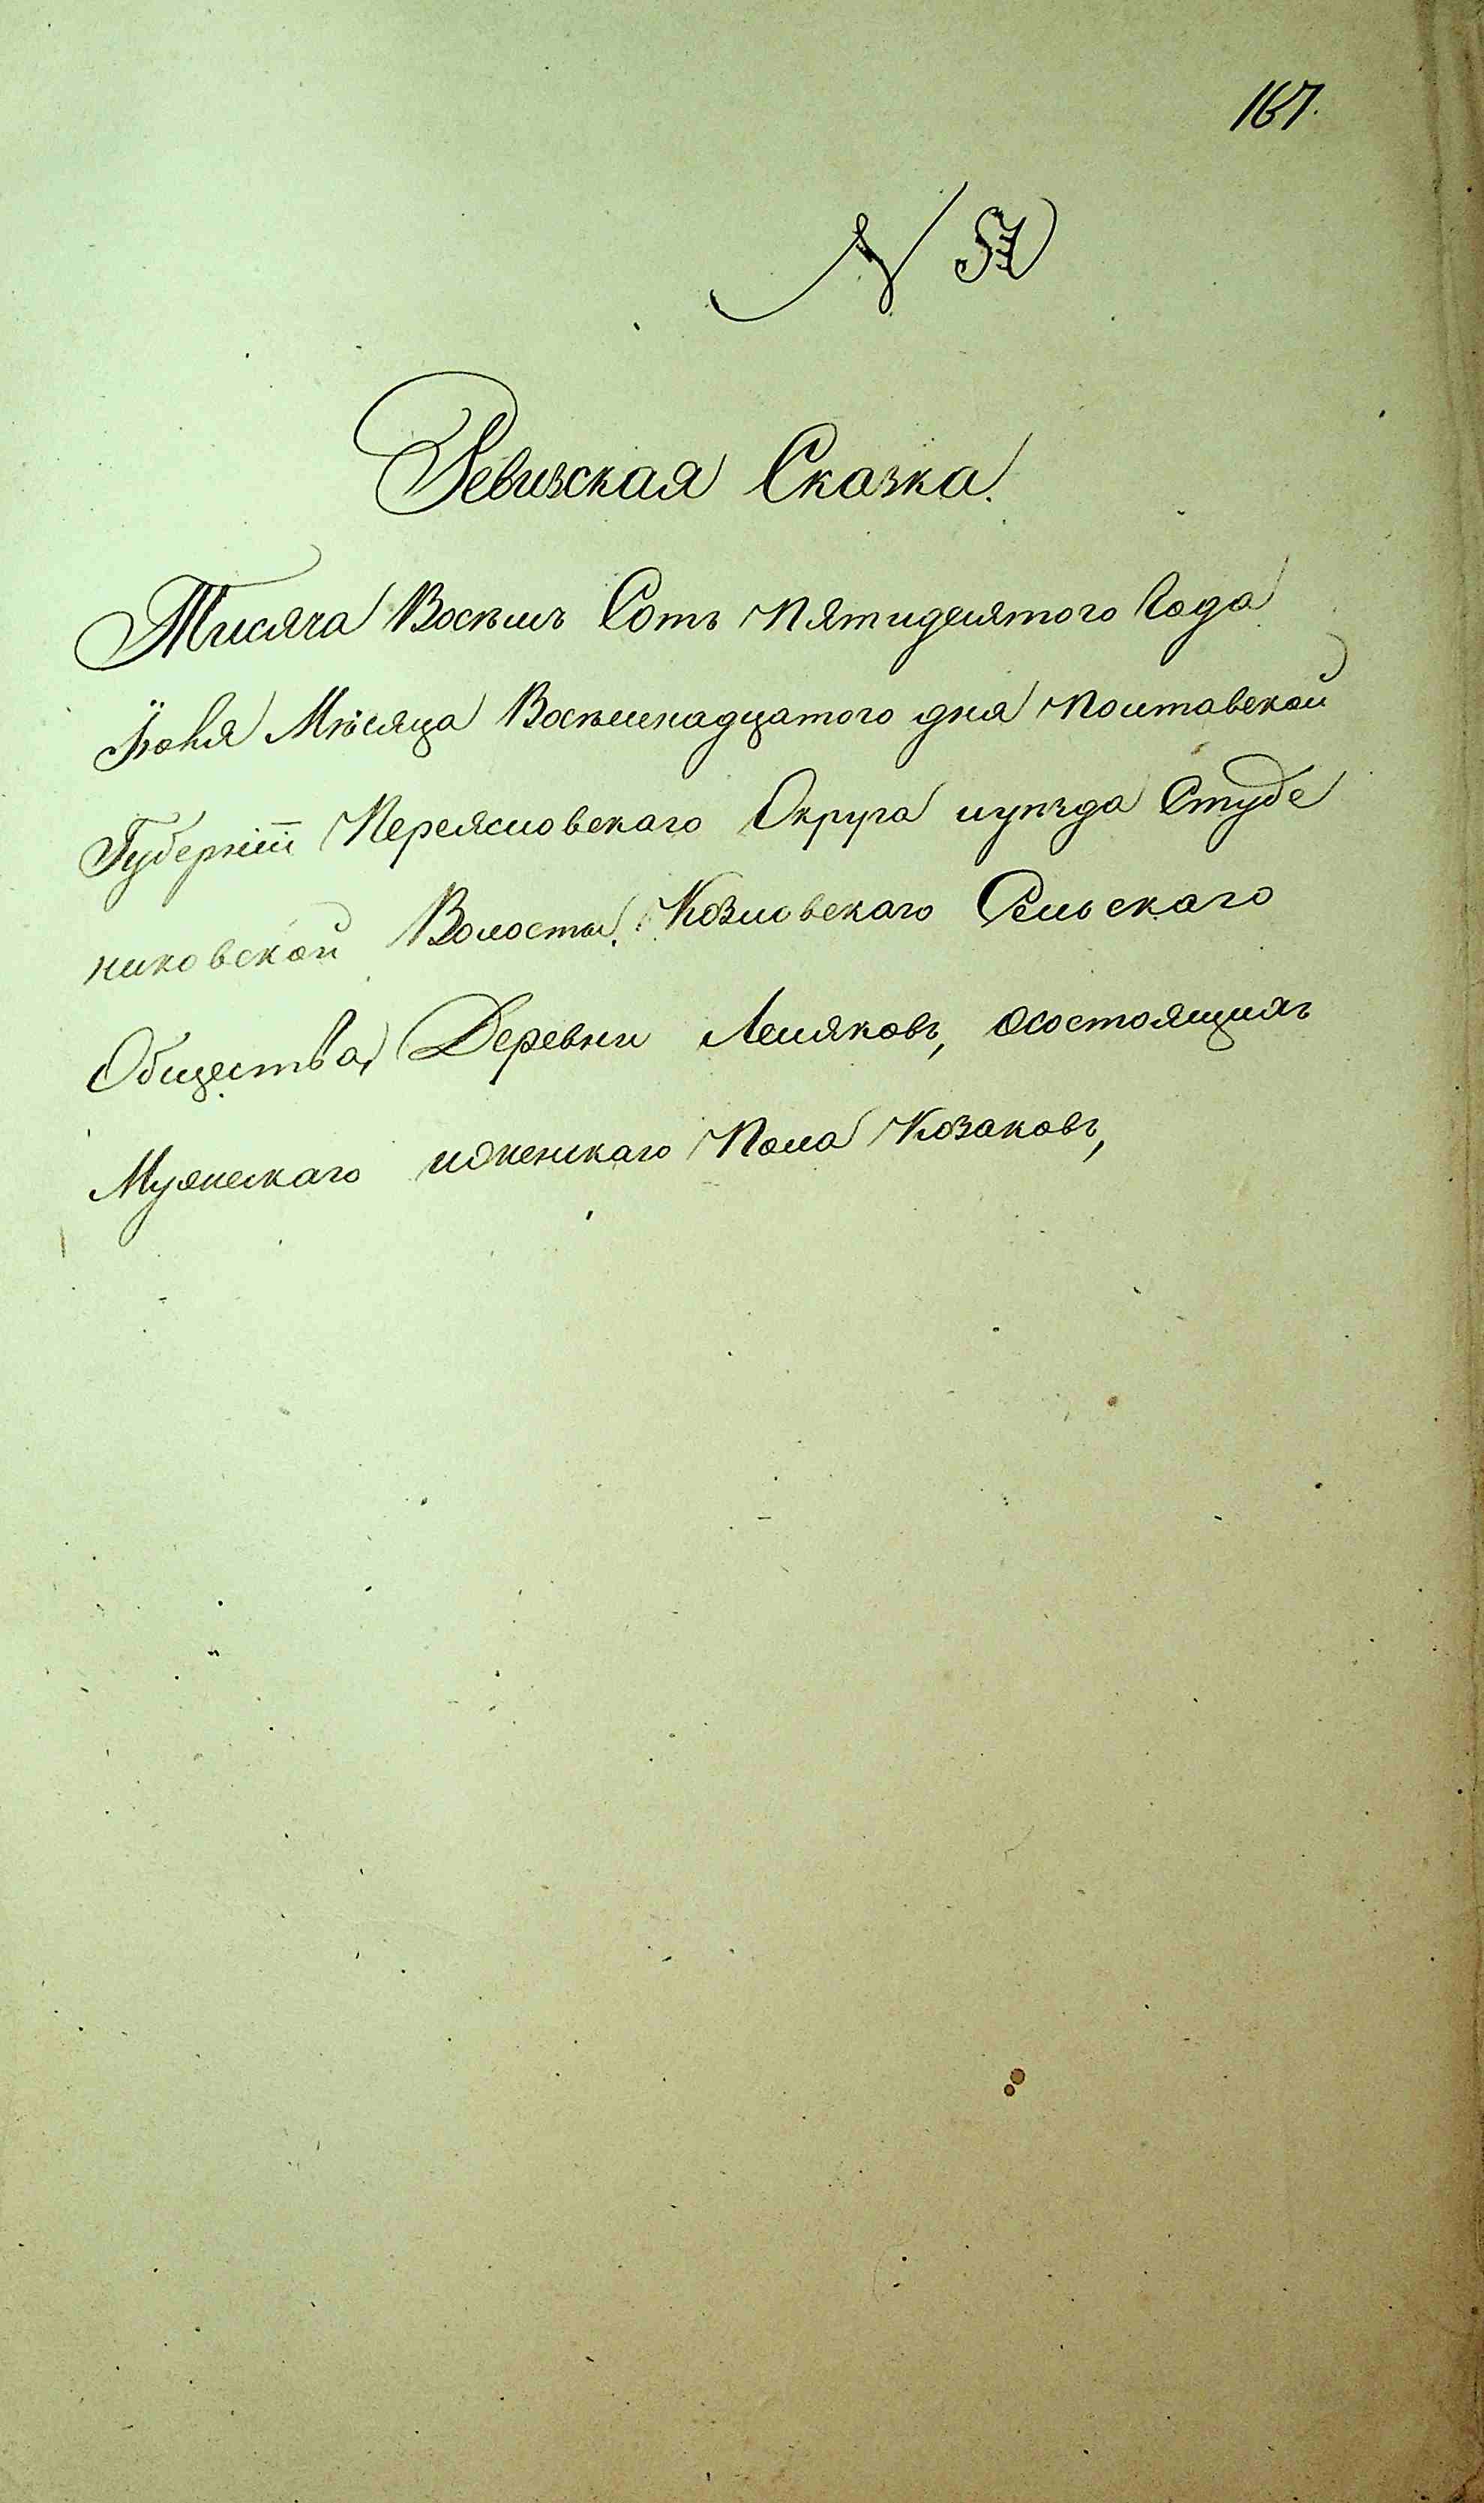 167.
N 57
Ревизская Сказка.
Тисяча Восѣмъ Сотъ Пятидесятого Года
Іюня Мѣсяца Восѣмнадцатого дня Полтавской
Губерніи Переясловскаго Округа иуѣзда Студе
никовской Волости, Козловскаго Сельскаго
Общества, Деревни Лемяковъ, осостоящихъ
Мужескаго иженскаго Пола Козаковъ,